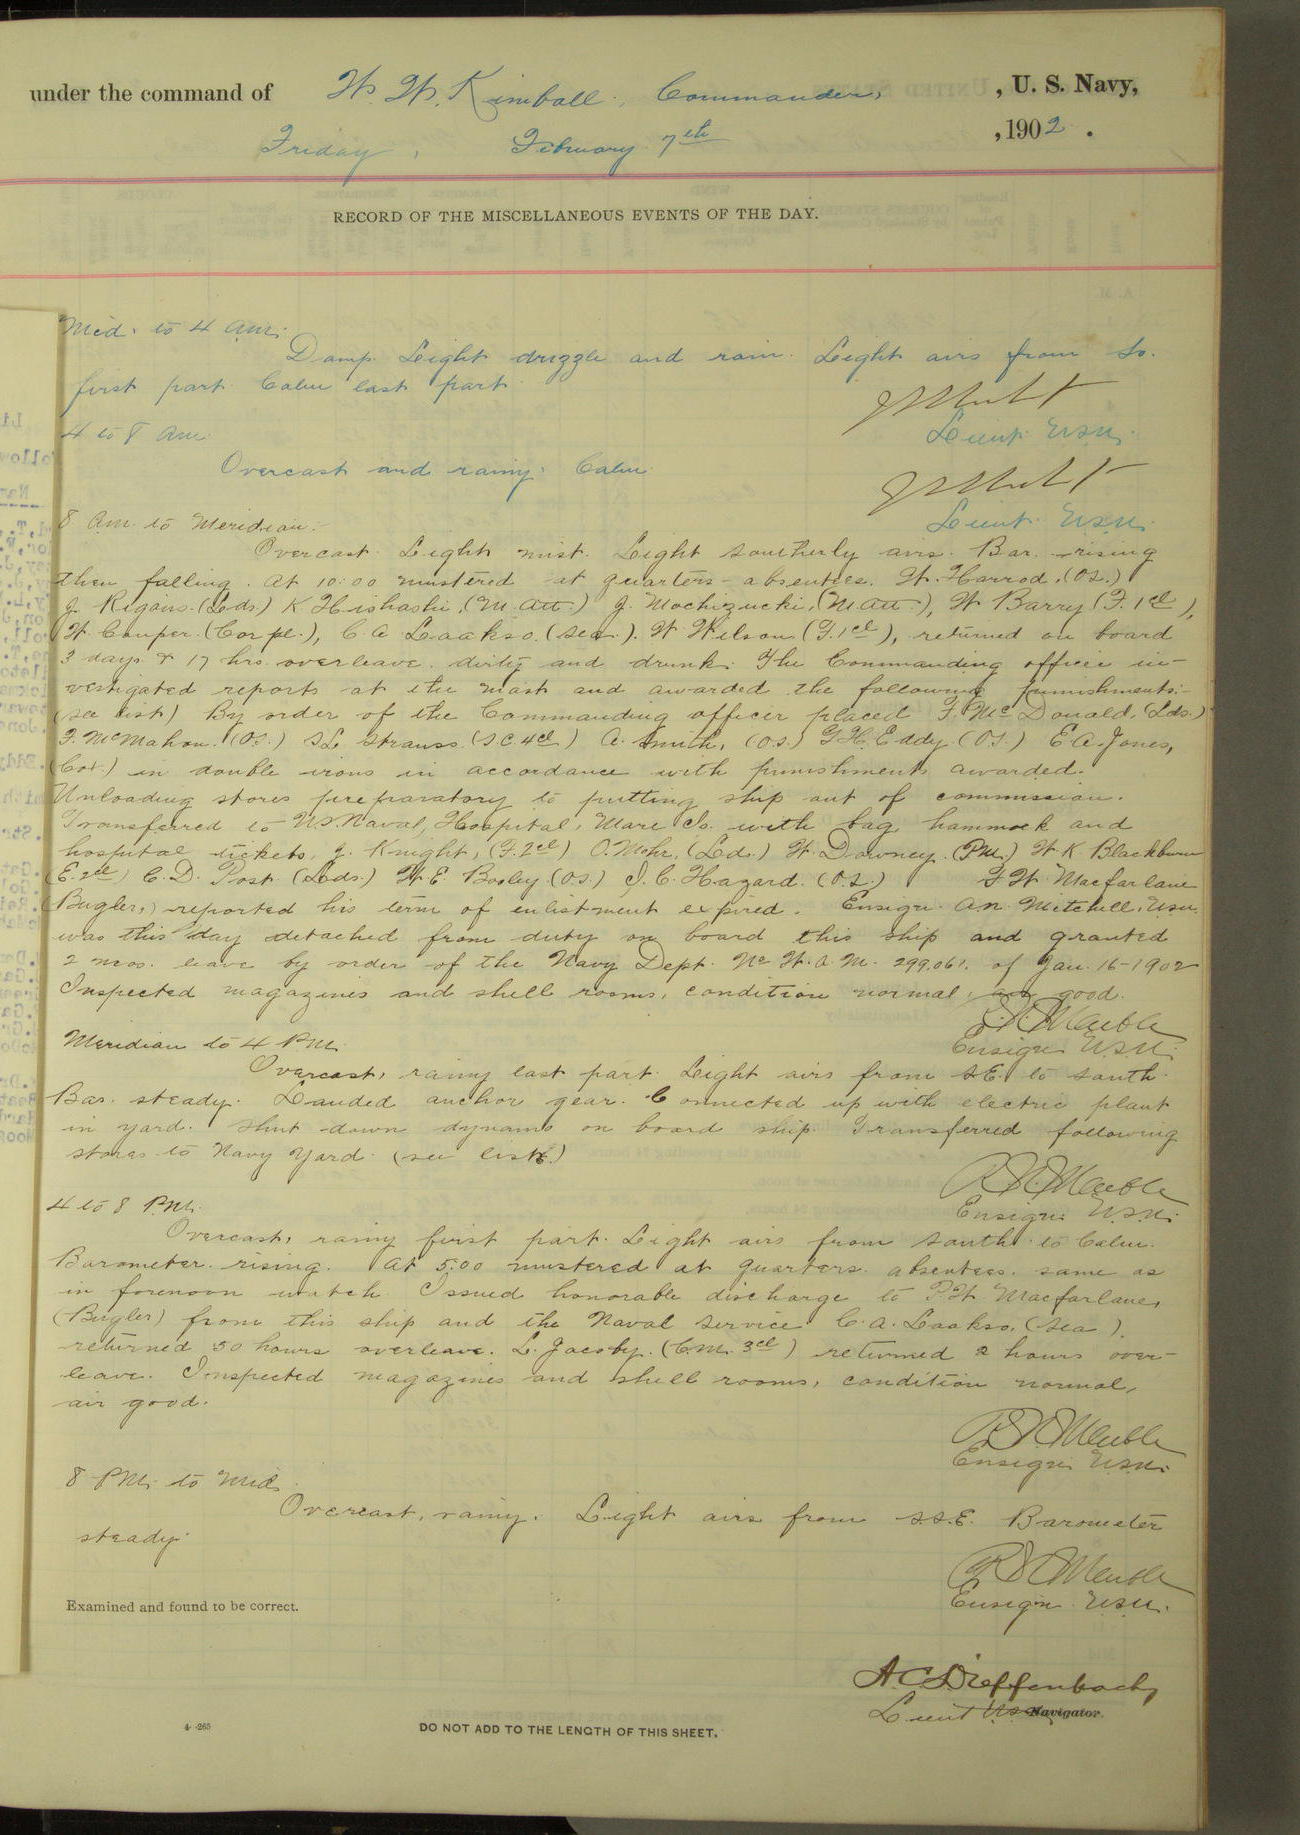 under the command of W. W. Kimball, Commander, , U. S. Navy,
Friday, February 7th , 1902.
RECORD OF THE MISCELLANEOUS EVENTS OF THE DAY.
Mid. to 4 am:
Damp. Light drizzle and rain. Light airs from So.
first part. Calm last part.
Lieut. USN.
4 to 8 am.
Overcast and rainy. Calm
Lieut. USN.
8 am. to Meridian.
Overcast. Light mist. Light southerly airs. Bar. rising
then falling. At 10:00 mustered at quarters - absentees. W. Harrod, (OS.)
J. Rigons. (Lds) K Hishashi, (M. Att.) J. Mochizucki, (M Att.), W Barry (F. 1cl),
W. Couper. (Corpl.), C. A Laakso. (sea.). W Wilson (F. 1cl), returned on board
3 days & 17 hrs. overleave. dirty and drunk. The Commanding officer in-
vestigated reports at the mast and awarded the following punishments:-
(see list) By order of the Commanding officer placed F. McDonald, (Lds.)
F. McMahon. (OS.) S L Strauss. (S C. 4cl) A. Smith, (O.S.) G H. Eddy (OS.) E A. Jones,
(Cox.) in double irons in accordance with punishments awarded.
Unloading stores preparatory to putting ship out of commission.
Transferred to US. Naval, Hospital, Mare Is. with bag, hammock and
hospital tickets, J. Knight, (F. 2cl) O. Mohr, (Ld.) W. Downey. (PM.) W K. Blackburn
(E. 2cl) C. D. Post (Lds.) W E. Bosley (OS.) J. C. Hazard. (O.S.) F W Macfarlane
(Bugler,) reported his term of enlistment expired. Ensign A N. Mitchell, USN.
was this day detached from duty on board this ship and granted
2 mos. leave by order of the Navy Dept. No. W. A. M. 299,061. of Jan. 16-1902
Inspected magazines and shell rooms, condition normal, air good.
Ensign USN.
Meridian to 4 PM.
Overcast, rainy last part. Light airs from SE. to South.
Bar. steady. Landed anchor gear. Connected up with electric plant
in yard. Shut down dynamo on board ship. Transferred following
stores to Navy Yard. (see list.)
Ensign USN.
4 to 8 P.M.
Overcast, rainy first part. Light airs from South to Calm.
Barometer rising. At 5:00 mustered at quarters. absentees. same as
in forenoon watch. Issued honorable discharge to F. W. Macfarlane,
(Bugler) from this ship and the Naval Service. C. A. Laakso, (Sea).
returned 50 hours overleave. L. Jacoby. (C.M. 3cl) returned 2 hours over-
leave. Inspected magazines and shell rooms, condition normal,
air good.
Ensign USN.
8 PM. to Mid.
Overcast, rainy. Light airs from S.S.E. Barometer
steady.
Ensign USN.
Examined and found to be correct.
A C Dieffenbach,
Lieut USN. Navigator.
4-265
DO NOT ADD TO THE LENGTH OF THIS SHEET.